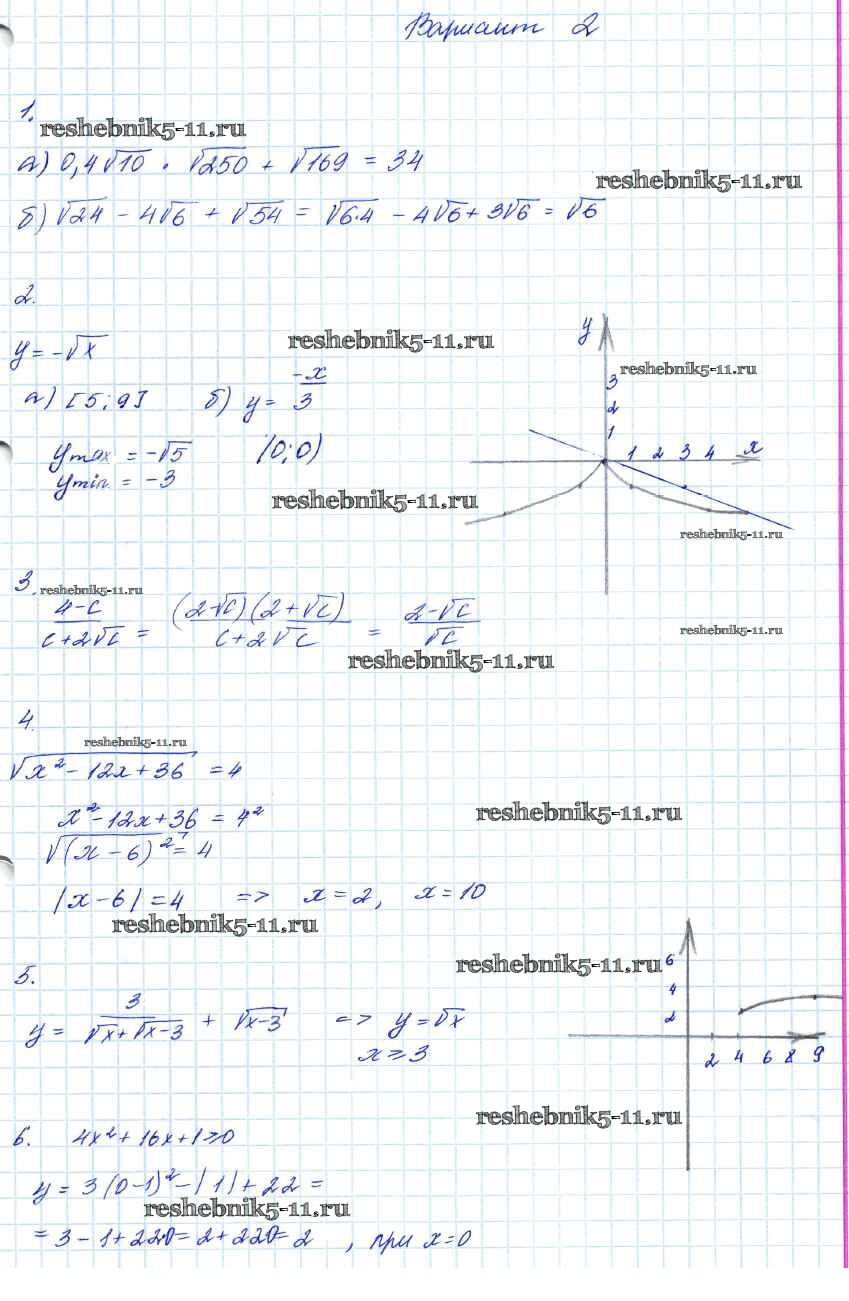 Вариант 2
1.
reshebnik5-11.ru
а) 0,4√10 · √250 + √169 = 34
reshebnik5-11.ru
б) √24 - 4√6 + √54 = √6·4 - 4√6 + 3√6 = √6
2.
y = -√x
reshebnik5-11.ru
а) [5; 9] б) y = -x/3
ymax = -√5 (0; 0)
ymin = -3
reshebnik5-11.ru
y
reshebnik5-11.ru
3
2
1
1 2 3 4 x
reshebnik5-11.ru
3. reshebnik5-11.ru
4-c/c+2√c = (2-√c)(2+√c)/c+2√c = 2-√c/√c
reshebnik5-11.ru
reshebnik5-11.ru
4.
reshebnik5-11.ru
√x²-12x+36 = 4
x²-12x+36 = 4²
reshebnik5-11.ru
√(x-6)² = 4
|x-6| = 4 => x = 2, x = 10
reshebnik5-11.ru
5.
reshebnik5-11.ru
y = 3/√x+√x-3 + √x-3 => y = √x
x ≥ 3
6
4
2
2 4 6 8 9
reshebnik5-11.ru
6. 4x²+16x+1≥0
y = 3(0-1)² - |1| + 22 =
reshebnik5-11.ru
= 3 - 1 + 220 = 2 + 220 = 2 , при x=0